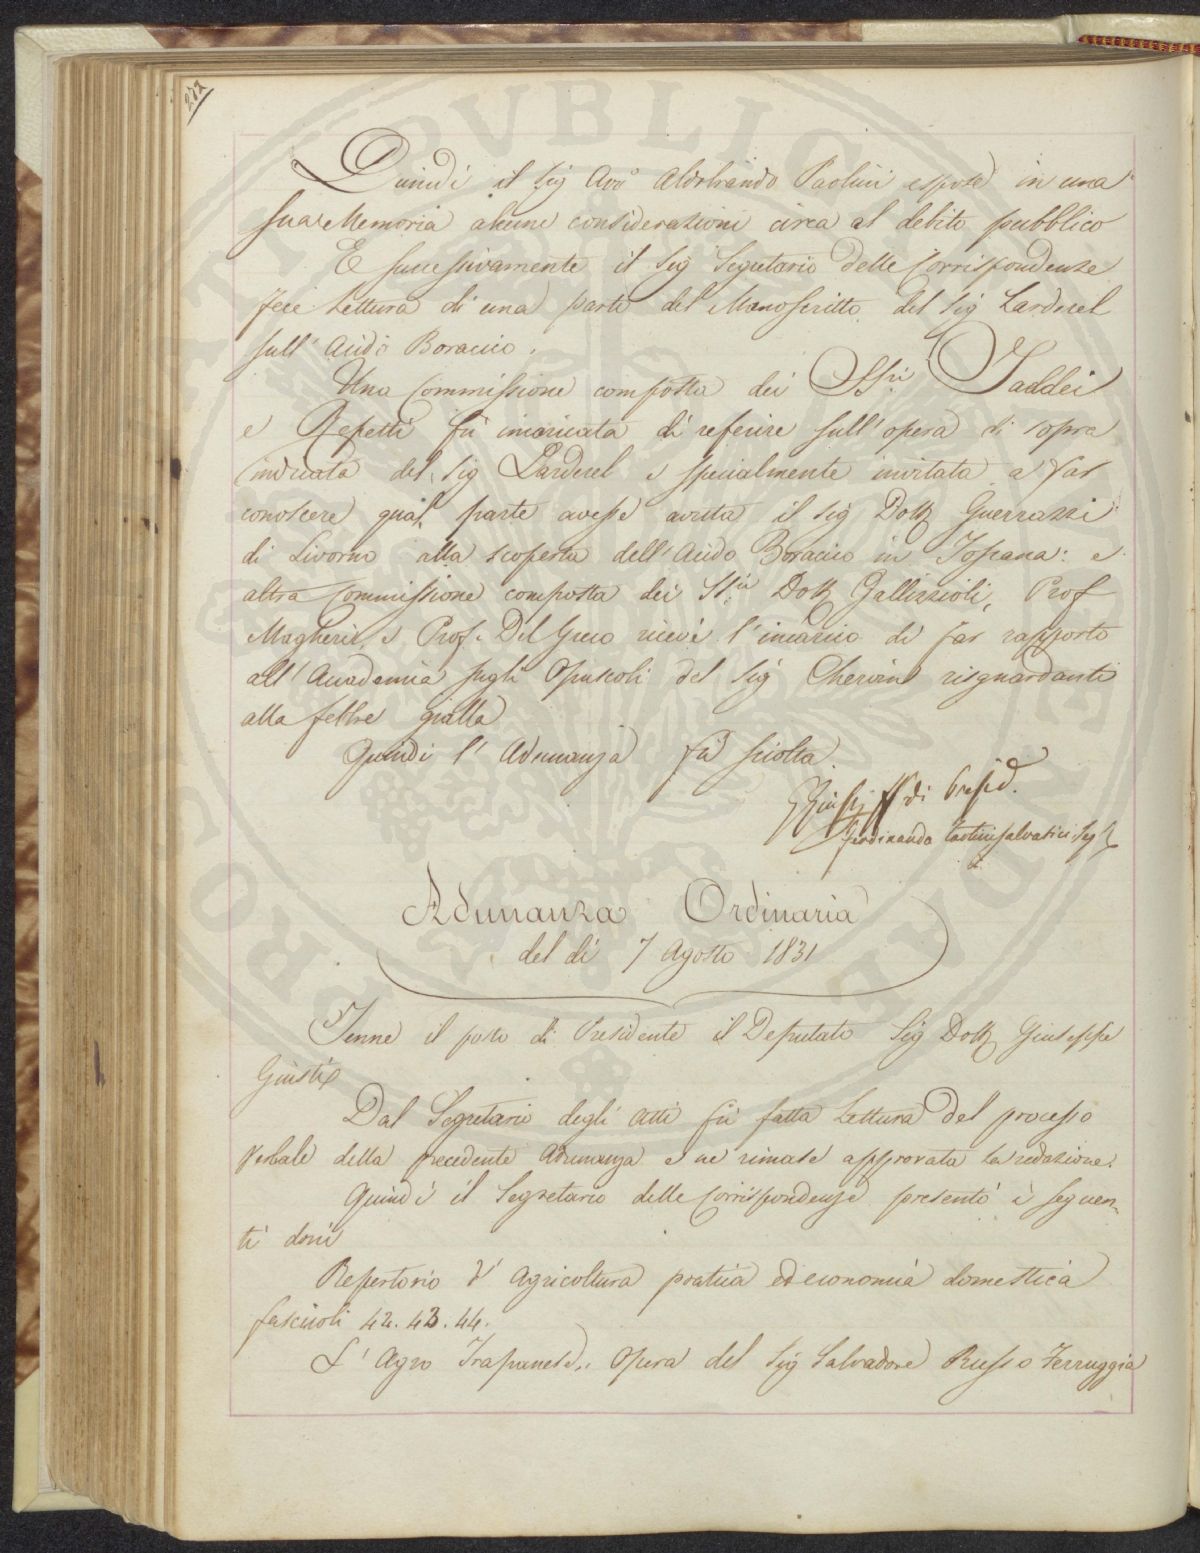 Quindi il Sig Avv.o Aldobrando Paolini espose in una
sua Memoria alcune considerazioni circa al debito pubblico
E successivamente il Sig Segretario delle Corrispondenze
fece Lettura di una parte del Manoscritto del Sig Larderel
sull'Acido Boracico.
Una Commissione composta dei SSri Taddei
e Repetti fù incaricata di referire sull'opera di sopra
indicata del Sig Larderel e specialmente invitata a far
conoscere qual parte avesse avuta il Sig Dott Guerrazzi
di Livorno alla scoperta dell'Acido Boracico in Toscana: e
altra Commissione composta dei SSri Dott Gallizzioli, Prof
Magheri, e Prof. Del Greco ricevè l'incarico di far rapporto
all'Accademia sugli Opuscoli del Sig Chervin risguardanti
alla febbre gialla
Quindi l'Adunanza fù sciolta.
GGiusti ff di Presid.
Ferdinando Tartini Salvatici Seg
Adunanza Ordinaria
del dì 7 Agosto 1831
Tenne il posto di Presidente il Deputato Sig Dott Giuseppe
Giusti
Dal Segretario degli Atti fù fatta Lettura del processo
Verbale della precedente Adunanza e ne rimase approvata la redazione.
Quindi il Segretario delle Corrispondenze presentò i seguen-
ti doni
Repertorio d'Agricoltura pratica ed economia domestica
fascicoli 42. 43. 44.
L'Agro Trapanese, Opera del Sig Salvadore Russo Ferruggia